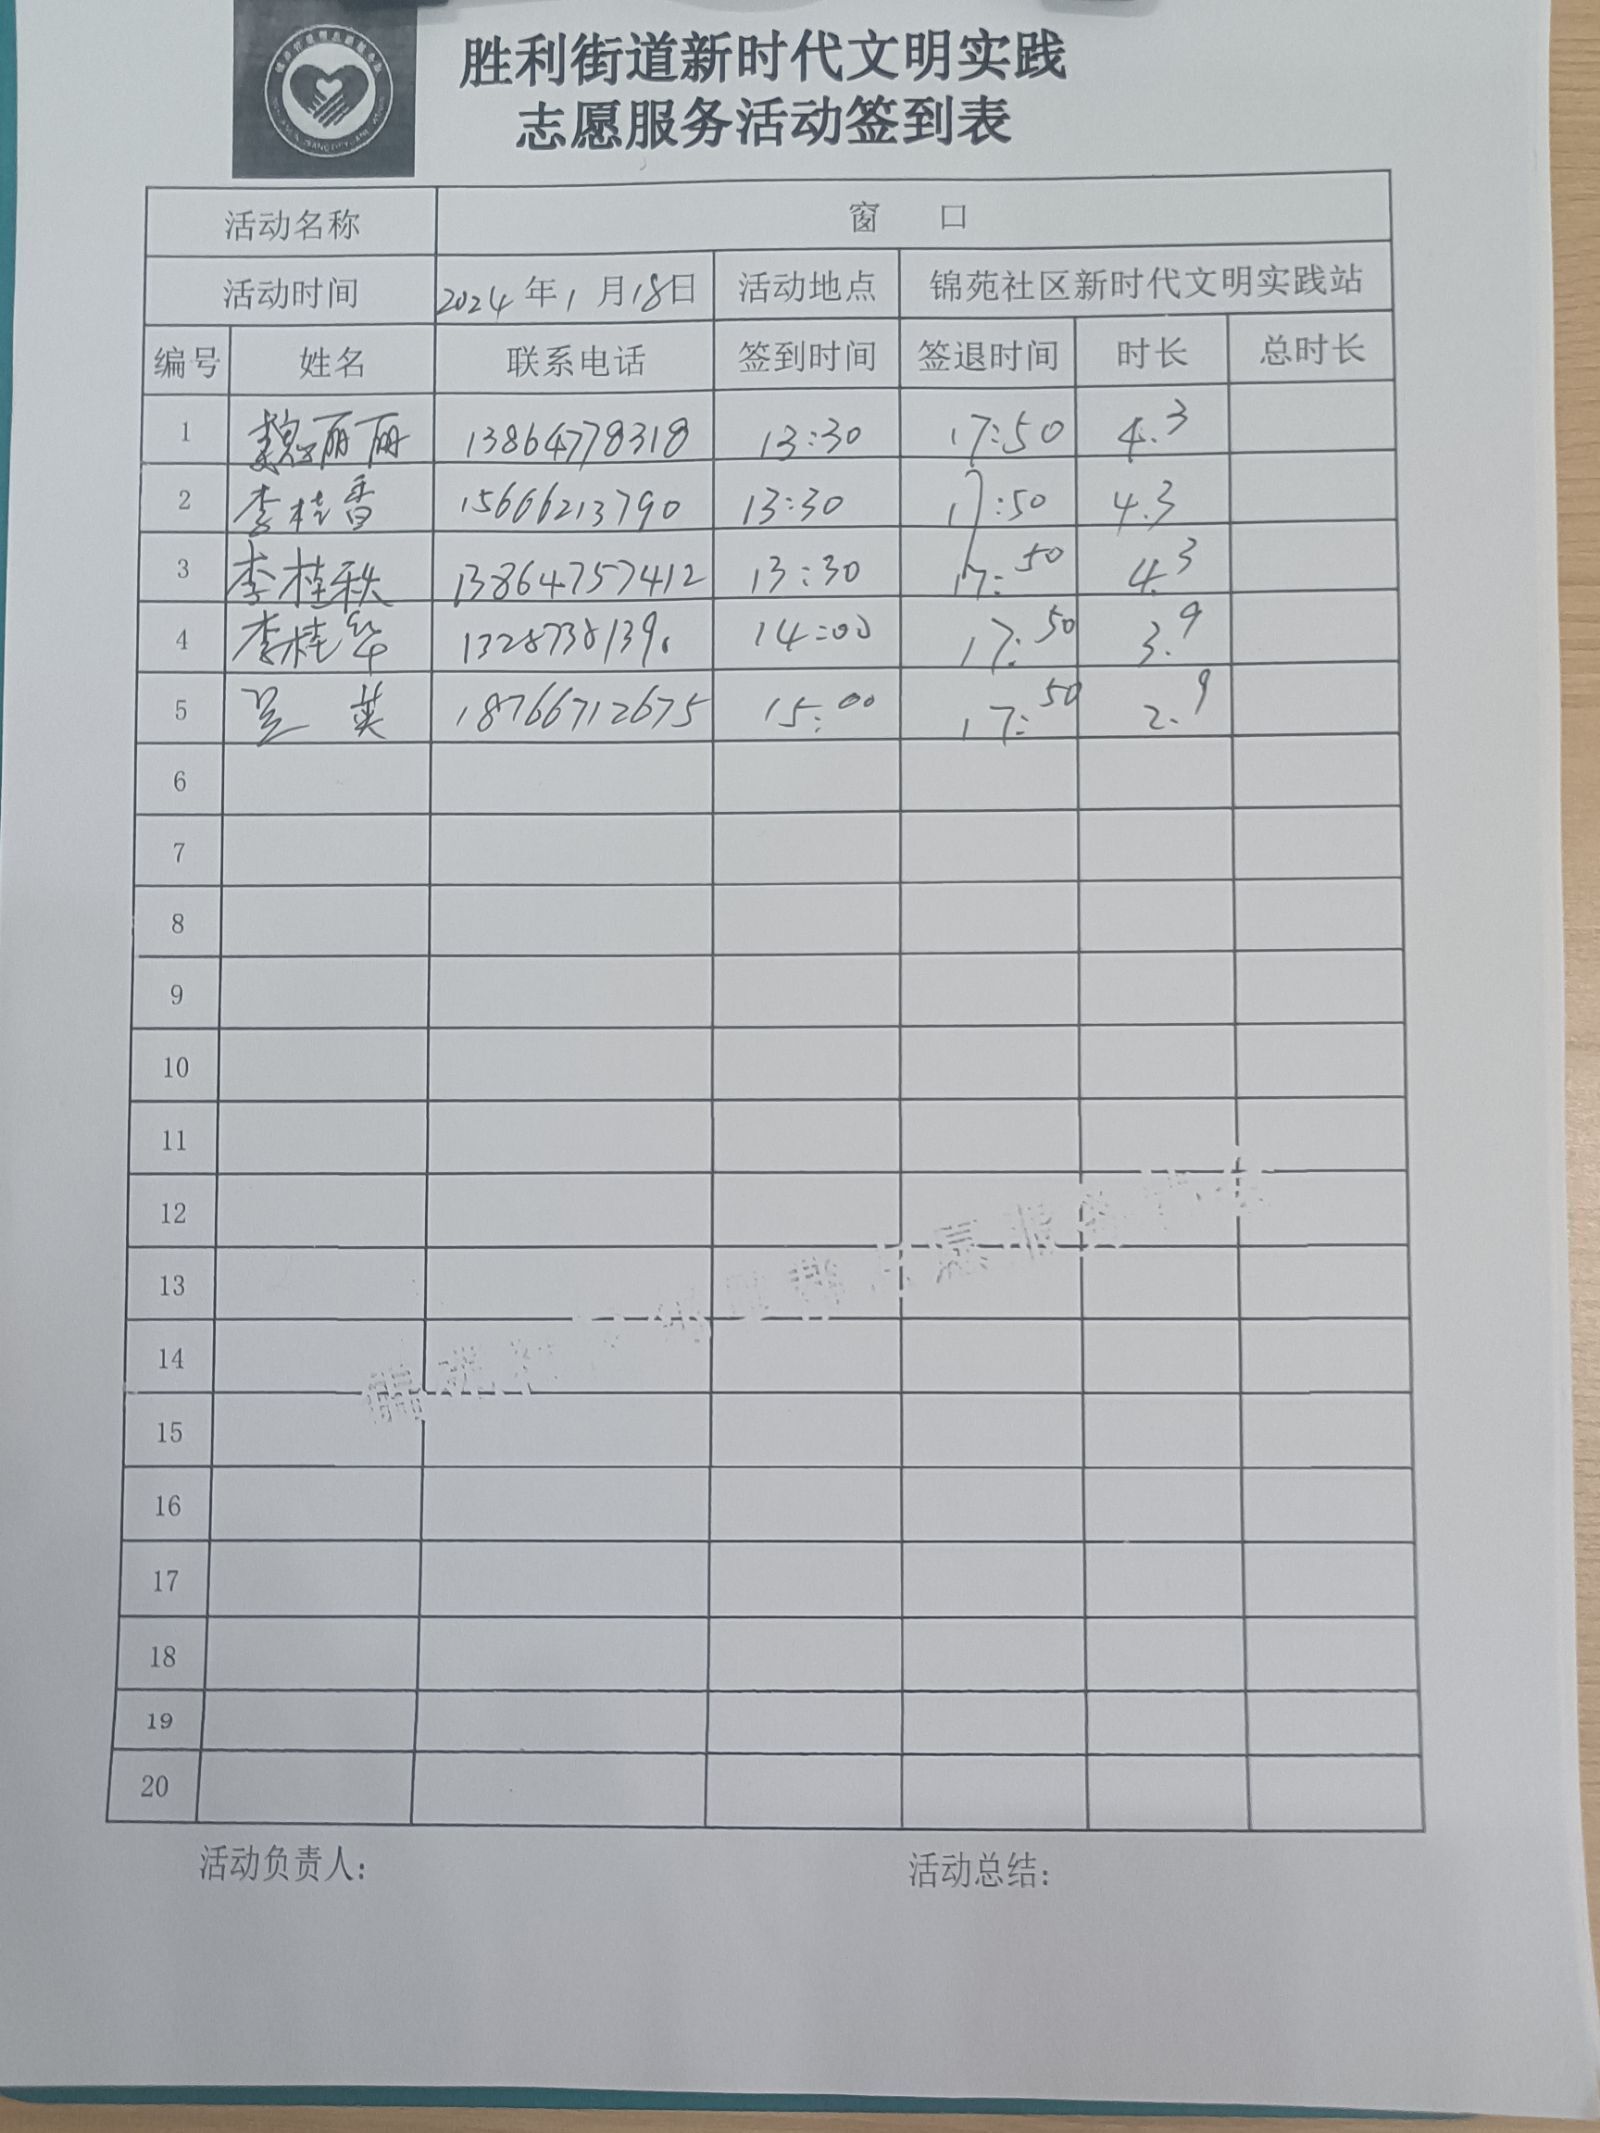 胜利街道新时代文明实践
志愿服务活动签到表
活动名称 窗 口
活动时间 2024年1月18日 活动地点 锦苑社区新时代文明实践站
编号 姓名 联系电话 签到时间 签退时间 时长 总时长
1 魏丽丽 13864778318 13:30 17:50 4.3
2 李桂香 15666213790 13:30 17:50 4.3
3 李桂秩 13864757412 13:30 17:50 4.3
4 李桂华 14:00 17:50 3.9
5 英 18766712675 15:00 17:50 2.9
6
7
8
9
10
11
12
13
14
15
16
17
18
19
20
活动负责人:
活动总结: